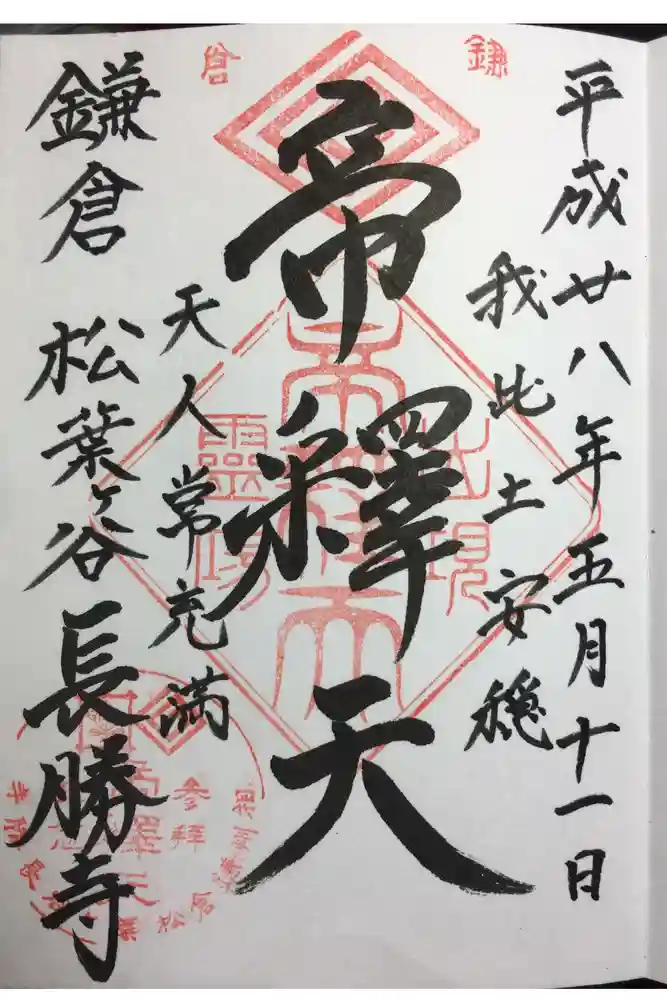 平成廿八年五月十一日
我此土安穏
鎌倉
帝釋天
出現
帝釈天
霊場
天人常充満
鎌倉 松葉ヶ谷 長勝寺
参拝